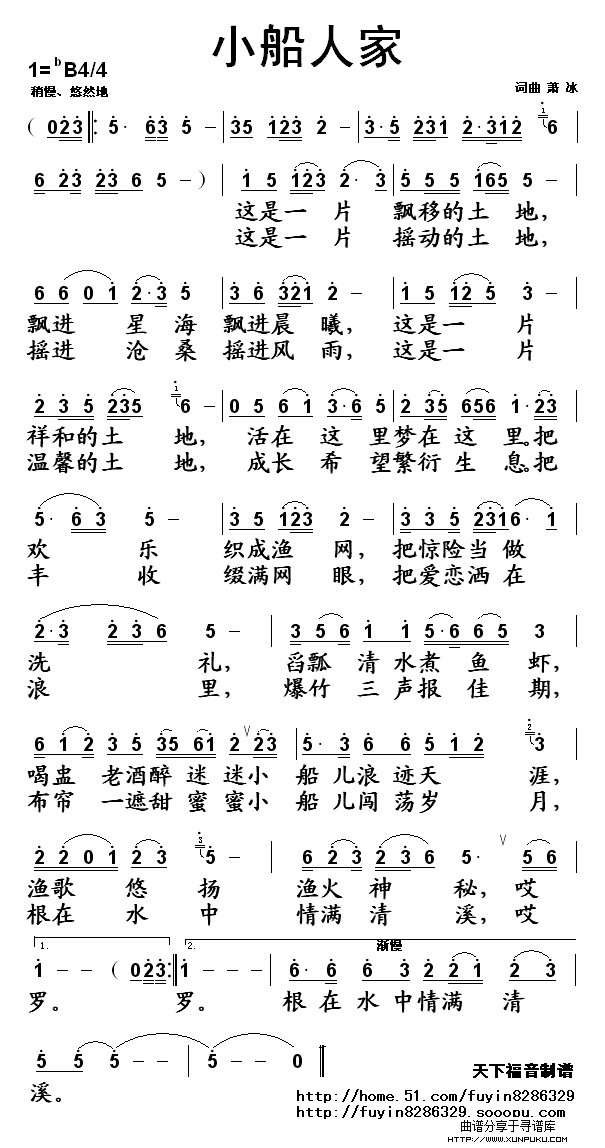 小船人家
1=ᵇB4/4
稍慢、悠然地
词曲 萧 冰
( 0 2 3 ‖: 5· 6 3 5 – | 3 5 1 2 3 2 – | 3· 5 2 3 1 2·3 1 2 1 6 |
6 2 3 2 3 6 5 – ) | 1 5 1 2 3 2· 3 | 5 5 5 1 6 5 5 – |
这是一 片 飘移的土 地,
这是一 片 摇动的土 地,
6 6 0 1 2·3 5 | 3 6 3 2 1 2 – | 1 5 1 2 5 3 – |
飘进 星 海 飘进晨 曦, 这是一 片
摇进 沧 桑 摇进风 雨, 这是一 片
2 3 5 2 3 5 1 6 – | 0 5 6 1 3·6 5 | 2 3 5 6 5 6 1· 2 3 |
祥和的土 地, 活在 这 里梦在 这 里。把
温馨的土 地, 成长 希 望繁衍 生 息。把
5· 6 3 5 – | 3 5 1 2 3 2 – | 3 3 5 2 3 1 6 · 1 |
欢 乐 织成渔 网, 把惊险当 做
丰 收 缀满网 眼, 把爱恋洒 在
2·3 2 3 6 5 – | 3 5 6 1 1 5·6 6 5 3 |
洗 礼, 舀瓢 清 水煮 鱼 虾,
浪 里, 爆竹 三 声报 佳 期,
6 1 2 3 5 3 5 6 1 2 ∨ 2 3 | 5· 3 6 6 5 1 2 2 3 |
喝盅 老酒醉 迷 迷小 船 儿浪 迹天 涯,
布帘 一遮甜 蜜 蜜小 船 儿闯 荡岁 月,
2 2 0 1 2 3 3 5 – | 6 2 3 2 3 6 5· ∨ 5 6 |
渔歌 悠 扬 渔火 神 秘, 哎
根在 水 中 情满 清 溪, 哎
1. 2. 渐慢
1 – – ( 0 2 3 :‖ 1 – – | 6· 6 6 3 2 2 1 2 3 |
罗。 罗。 根 在 水 中情满 清
5 5 5 – – | 5 – 5 0 ‖
溪。
天下福音制谱
http://home.51.com/fuyin8286329
http://fuyin8286329.sooopu.com
曲谱分享于寻谱库
WWW.XUNPUKU.COM